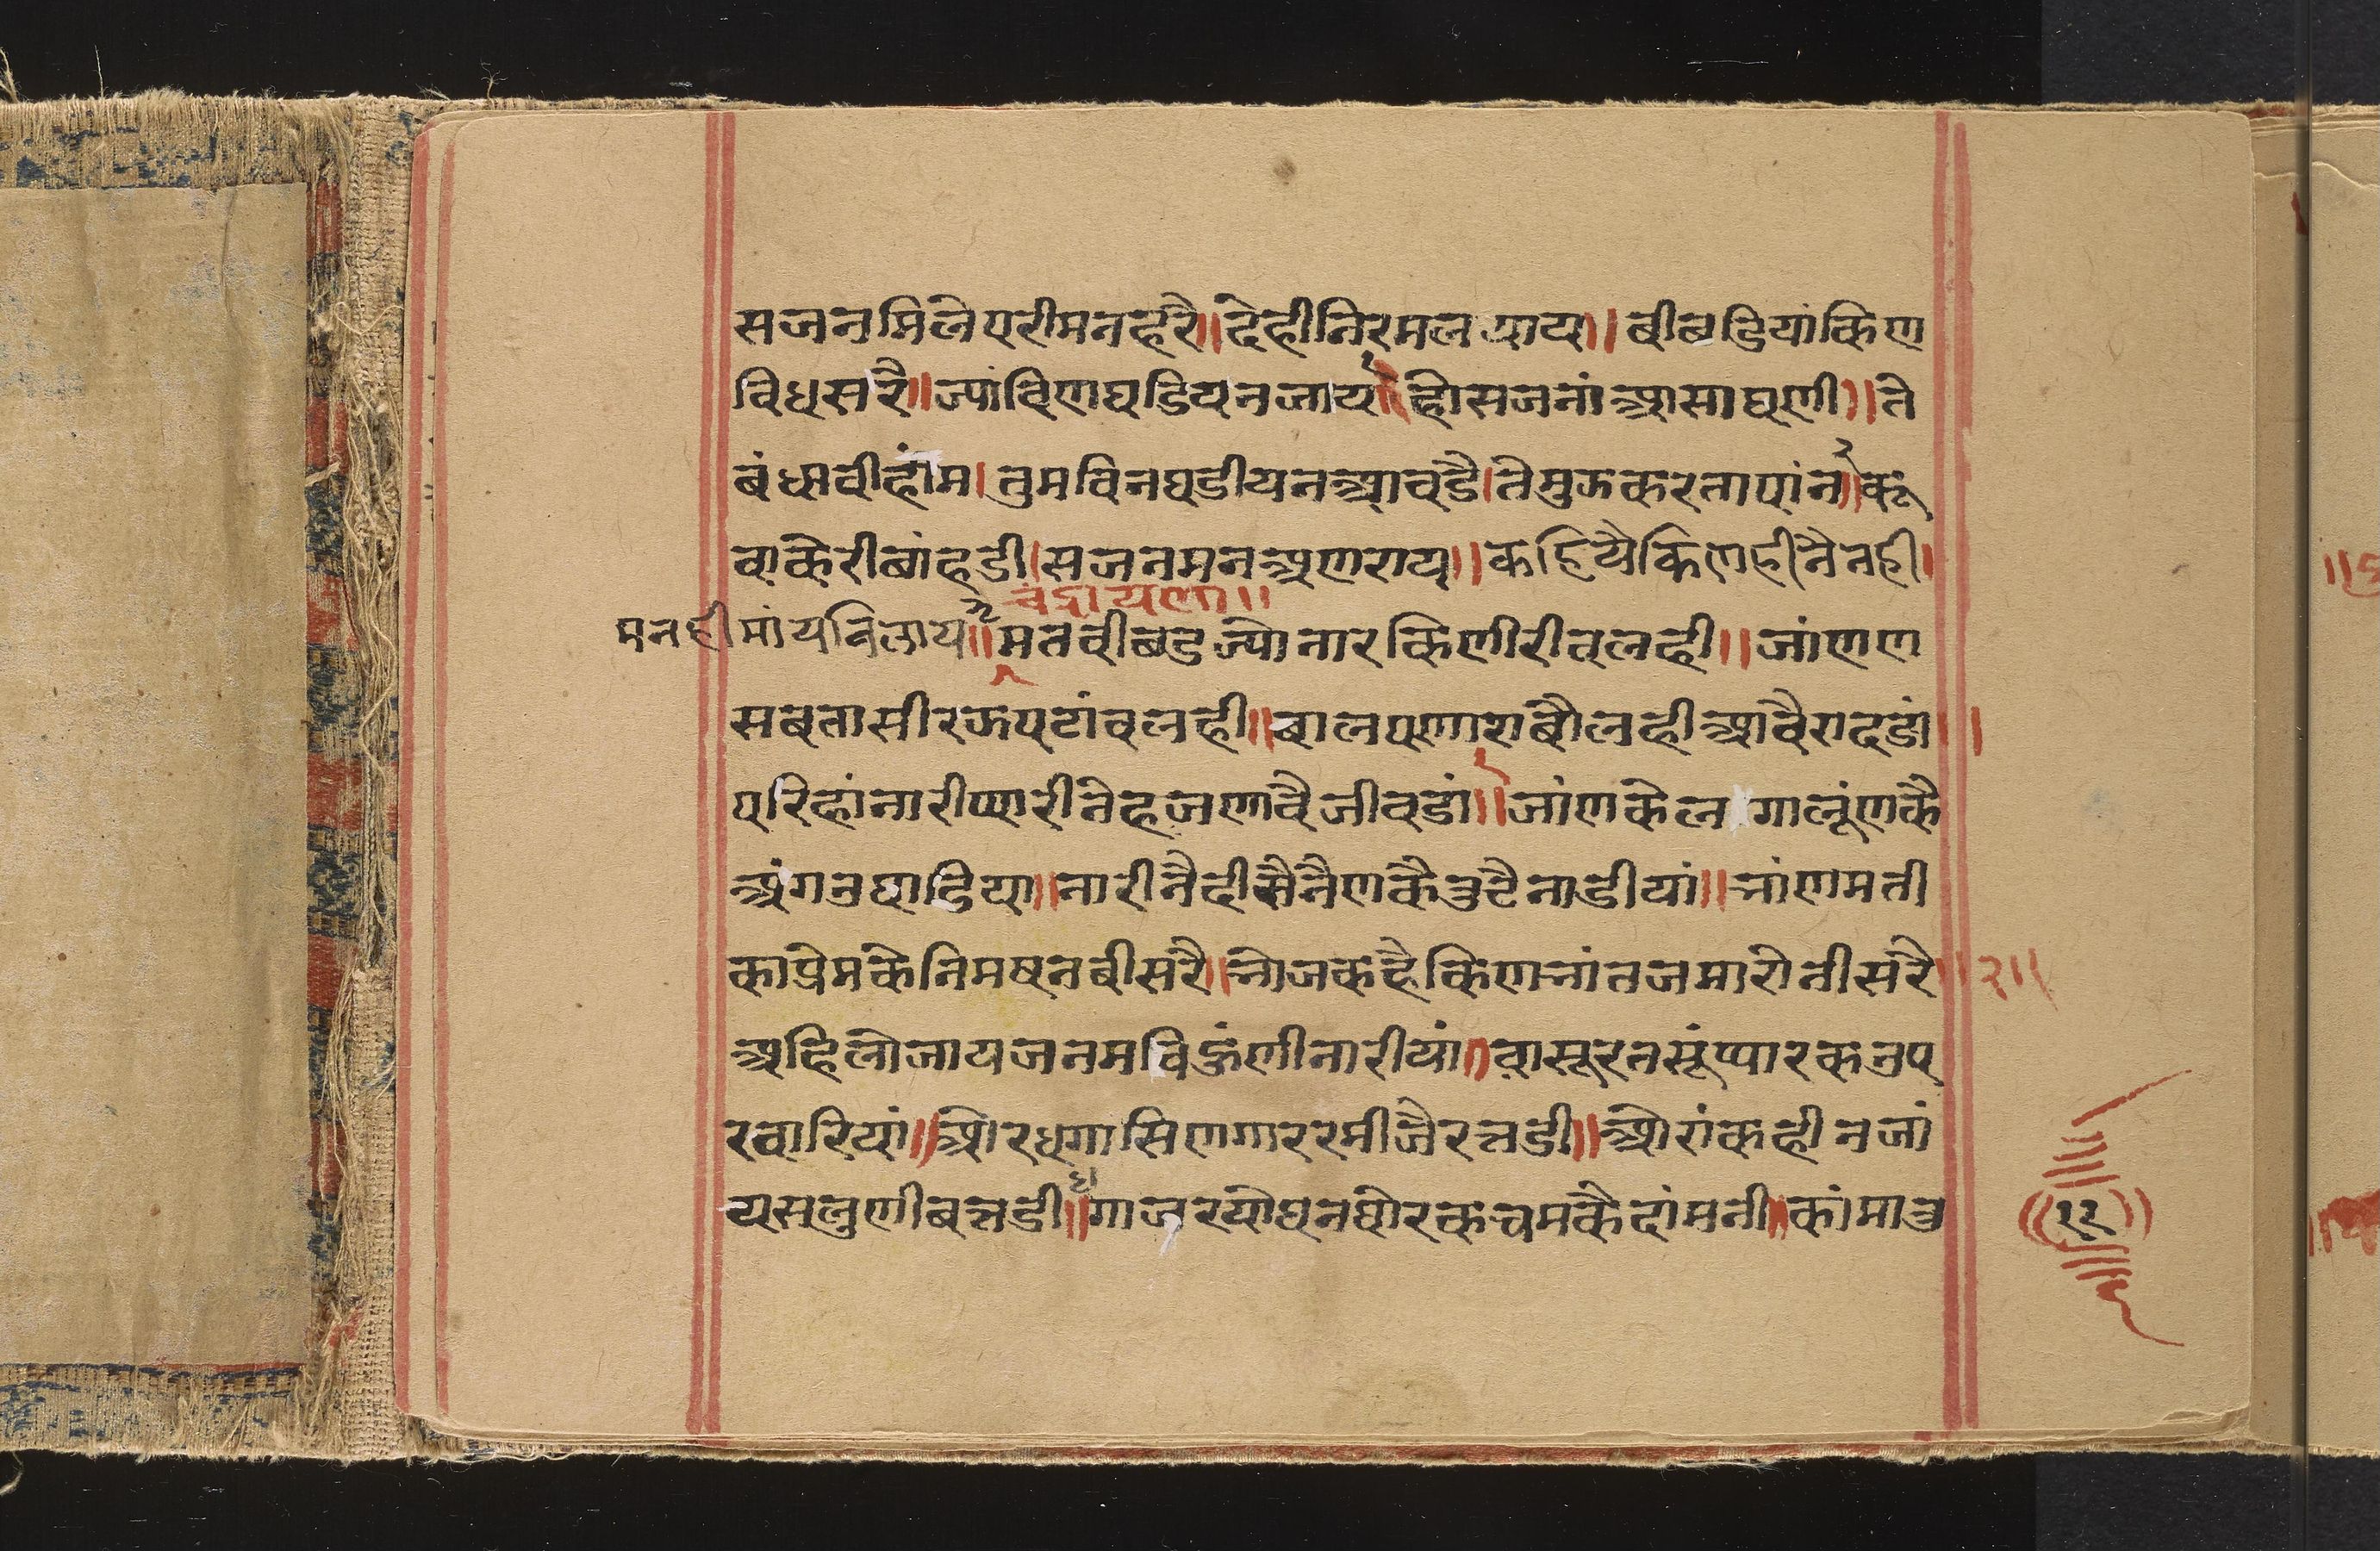 सजनमिलेपरीमनहरै॥देहीनिरमलथाय॥बीबडियांकिण
विधसरै॥ज्यांविणघडियनजाय॥१हीसजनांआसाघणी॥ते
बंधावीहांम।तुमविनघडीयनआवडै।तेमुऊकरतापांन॥२कू
वाकेरीबांहडी।सजनमनअणराय॥कहियैकिणहीनैनही।
चंद्रायणा॥
मनहीमांयविलाय॥३मतवीबडज्योनारकिणीरीतलही॥जांणण
सबतासीरऊपटांवलही॥बालपणाराबोलहीआवैरादडां॥
परिहांनारीप्यारीतेहजणावैजीवडां॥१जांणकेलगालूंणकै
अंगउघाडिया॥नारीनैदीसैनैणकैत्रुटैनाडीयां॥नांणमती
काप्रेमकेनिमषनबीसरै॥नोजकहैकिणनांतजमारोनीसरै॥२॥
अहिलोजायजनमविहुंणीनारीयां॥वासूरतसूंप्यारकउप
रवारियां॥ओरधगासिणगाररमीजैरत्तडी॥ओरांकहीनजां
यसलुणीबत्तडी॥३गाजरयोघनघोरकचमकैदांमनी॥कांमाउ
॥१२॥